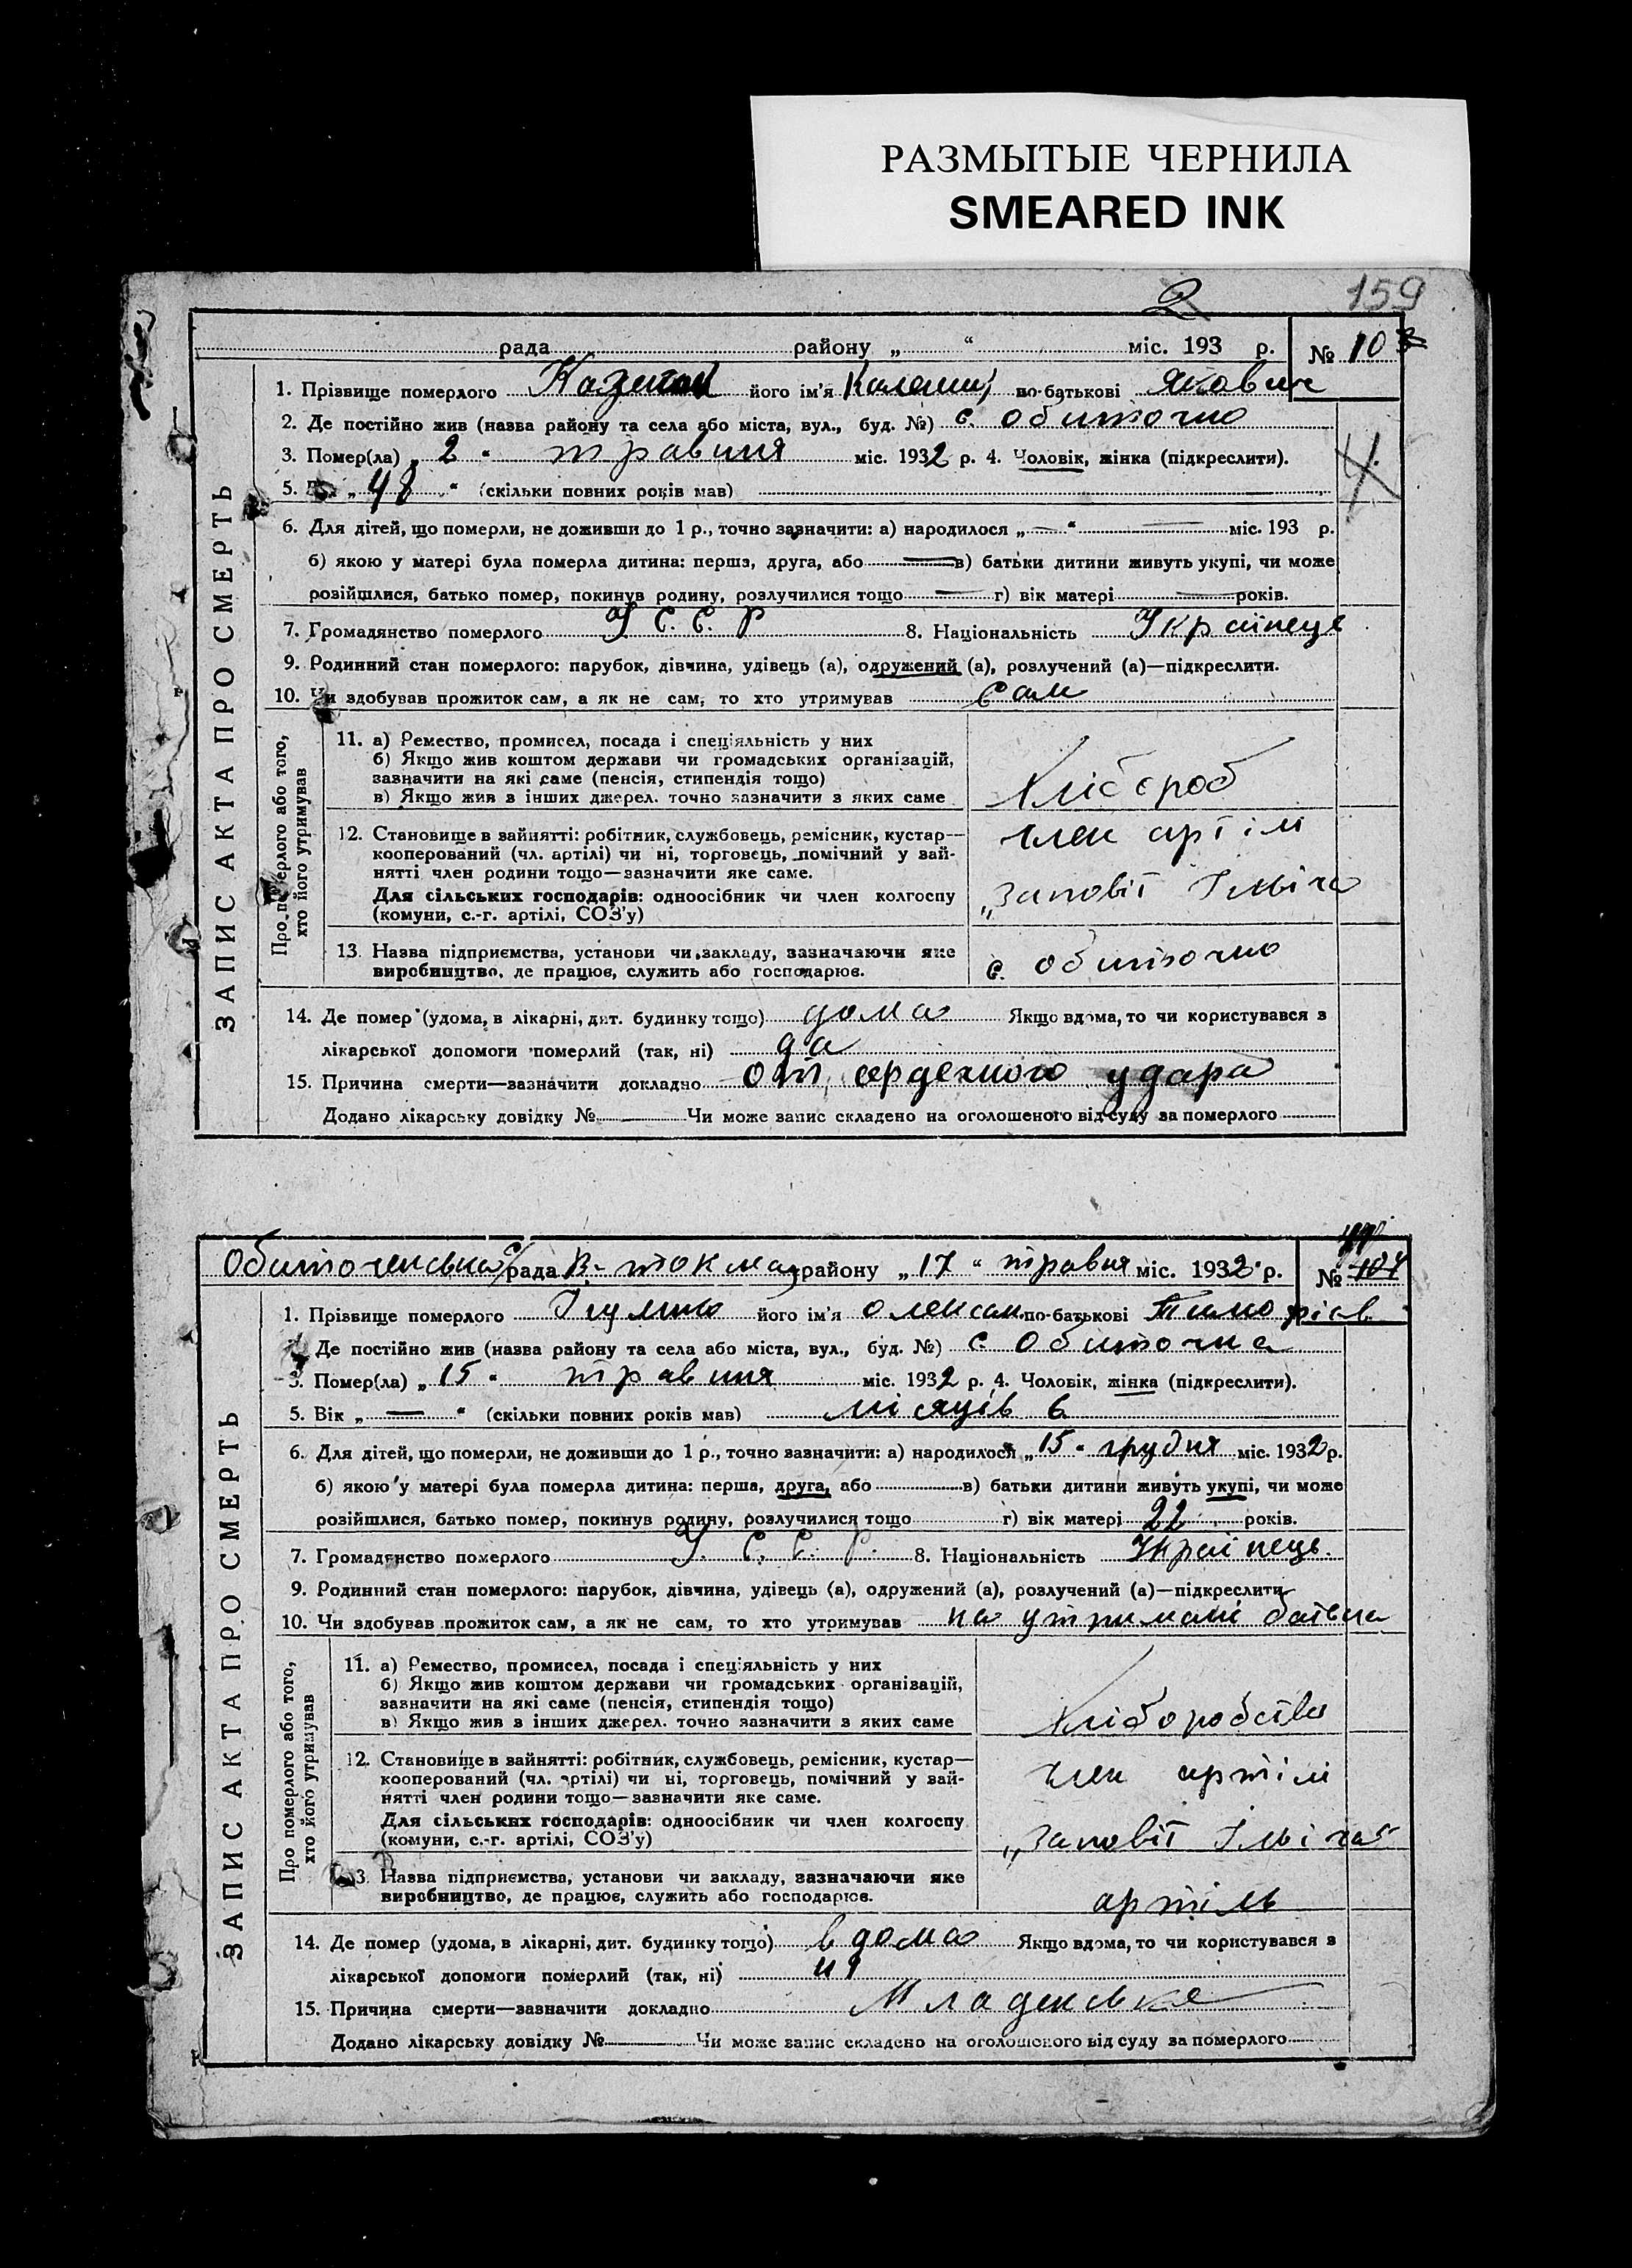 РАЗМЫТЫЕ ЧЕРНИЛА
SMEARED INK
2
159
рада району „ “ міс. 193 р. № 10
1. Прізвище померлого його ім'я по-батькові Якович
2. Де постійно жив (назва району та села або міста, вул., буд. №) с. Обиточно
3. Помер(ла) „ 2 “ травня міс. 1932 р. 4. Чоловік, жінка (підкреслити).
4
5. „ 48 “ (скільки повних років мав)
6. Для дітей, що померли, не доживши до 1 р., точно зазначити: а) народилося „ — “ — міс. 193 р.
б) якою у матері була померла дитина: перша, друга, або — в) батьки дитини живуть укупі, чи може
розійшлися, батько помер, покинув родину, розлучилися тощо — г) вік матері — років.
7. Громадянство померлого У С. С. Р 8. Національність Українець
9. Родинний стан померлого: парубок, дівчина, удівець (а), одружений (а), розлучений (а)—підкреслити.
10. Чи здобував прожиток сам, а як не сам, то хто утримував сам
ЗАПИС АКТА ПРО СМЕРТЬ
Про померлого або того, хто його утримував
11. а) Ремество, промисел, посада і спеціяльність у них
б) Якщо жив коштом держави чи громадських організацій,
зазначити на які саме (пенсія, стипендія тощо)
в) Якщо жив з інших джерел. точно зазначити з яких саме
Хлібороб
12. Становище в зайнятті: робітник, службовець, ремісник, кустар—
кооперований (чл. артілі) чи ні, торговець, помічний у зай-
нятті член родини тощо—зазначити яке саме.
Для сільських господарів: одноосібник чи член колгоспу
(комуни, с.-г. артілі, СОЗ'у)
член артілі
„Заповіт Ілліча
13. Назва підприємства, установи чи закладу, зазначаючи яке
виробництво, де працює, служить або господарює.
с. Обиточно
14. Де помер (удома, в лікарні, дит. будинку тощо) дома Якщо вдома, то чи користувався з
лікарської допомоги померлий (так, ні) да
15. Причина смерти—зазначити докладно от сердечного удара
Додано лікарську довідку № — Чи може запис складено на оголошеного від суду за померлого
Обиточенська с/рада В-Токмац району „ 17 “ травня міс. 1932 р. № 104
1. Прізвище померлого його ім'я Олексан по-батькові
2. Де постійно жив (назва району та села або міста, вул., буд. №) с. Обиточна
3. Помер(ла) „ 15 “ травня міс. 1932 р. 4. Чоловік, жінка (підкреслити).
5. Вік „ — “ (скільки повних років мав) місяців 6
6. Для дітей, що померли, не доживши до 1 р., точно зазначити: а) народилося „ 15 “ грудня міс. 1932 р.
б) якою у матері була померла дитина: перша, друга, або в) батьки дитини живуть укупі, чи може
розійшлися, батько помер, покинув родину, розлучилися тощо г) вік матері 22 років.
7. Громадянство померлого У. С. С. Р. 8. Національність Українець.
9. Родинний стан померлого: парубок, дівчина, удівець (а), одружений (а), розлучений (а)—підкреслити
10. Чи здобував прожиток сам, а як не сам, то хто утримував на утримані батька
ЗАПИС АКТА ПРО СМЕРТЬ
Про померлого або того, хто його утримував
11. а) Ремество, промисел, посада і спеціяльність у них
б) Якщо жив коштом держави чи громадських організацій,
зазначити на які саме (пенсія, стипендія тощо)
в) Якщо жив з інших джерел. точно зазначити з яких саме
Хліборобства
12. Становище в зайнятті: робітник, службовець, ремісник, кустар—
кооперований (чл. артілі) чи ні, торговець, помічний у зай-
нятті член родини тощо—зазначити яке саме.
Для сільських господарів: одноосібник чи член колгоспу
(комуни, с.-г. артілі, СОЗ'у)
член артілі
„Заповіт Ілліча“
13. Назва підприємства, установи чи закладу, зазначаючи яке
виробництво, де працює, служить або господарює.
артіль
14. Де помер (удома, в лікарні, дит. будинку тощо) в дома Якщо вдома, то чи користувався з
лікарської допомоги померлий (так, ні)
15. Причина смерти—зазначити докладно Младенське
Додано лікарську довідку № — Чи може запис складено на оголошеного від суду за померлого